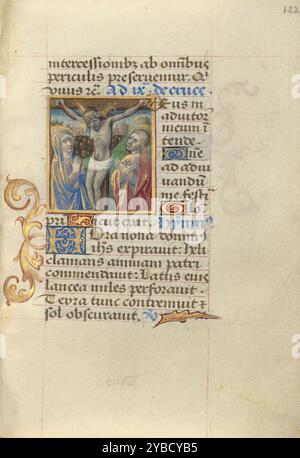 122
intercessionibz ab omnibus
periculis preseruemur. Q
viuis rc̄ Ad ix de cruce.
Eus in
adiutor
meum in
tende
Dn̄e
ad adiu
uandū
me festi
Glo
pri Sicut erat. Hymn⁹
Hora nona domin⁹
ih̄s expirauit: heli
clamans animam patri
commendauit: Lat⁹ eius
lancea miles perforauit
Terra tunc contremuit et
sol obscurauit.
alamy
Image ID: 2YBCYB5
www.alamy.com